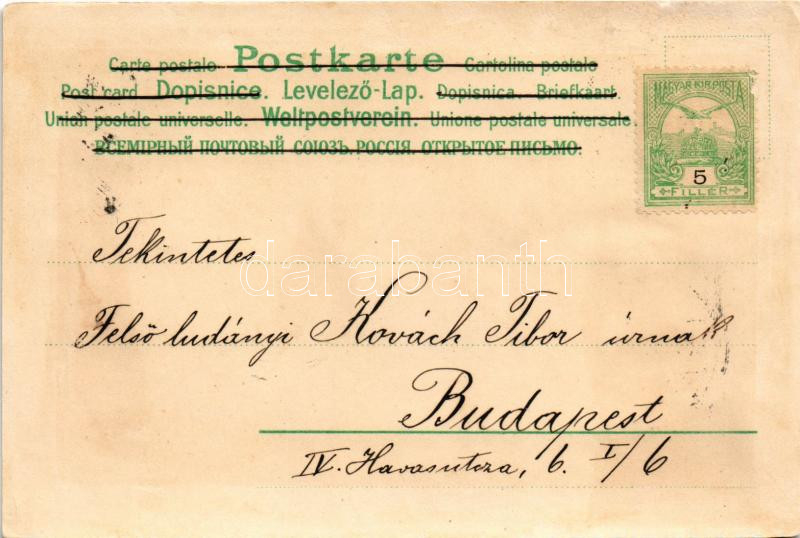 Carte postale Postkarte Cartolina postale
Post card Dopisnice. Levelező-Lap. Dopisnica. Briefkaart.
Union postale universelle. Weltpostverein. Unione postale universale.
ВСЕМІРНЫЙ ПОЧТОВЫЙ СОЮЗЪ. РОССІЯ. ОТКРЫТОЕ ПИСЬМО.
MAGYAR KIR. POSTA
5
FILLÉR
Tekintetes
darabanth
Felső ludányi Kovách Tibor úrnak
Budapest
IV. Havasutcza, 6. I/6